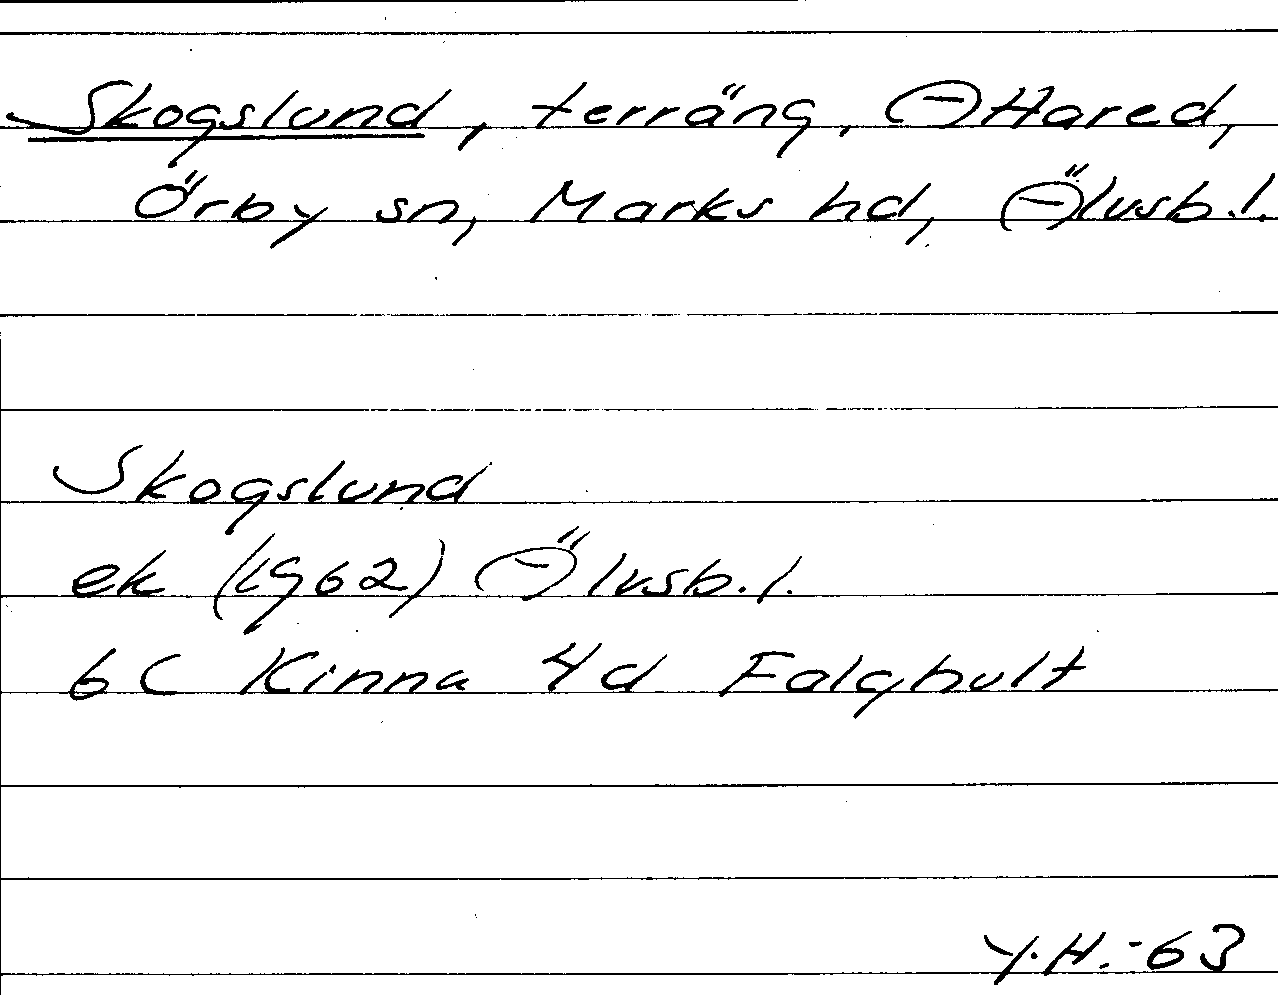 Skogslund, terräng, Attared,
Örby sn, Marks hd, Älvsb.l.
Skogslund
ek (1962) Älvsb.l.
6C Kinna 4d Falghult
Y.H.-63